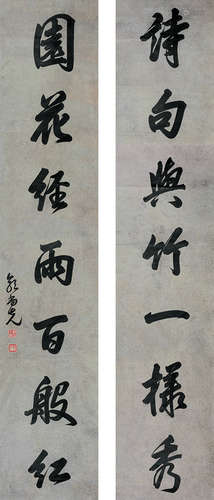 詩句與竹一樣秀
園花經雨百般紅
郭尚先